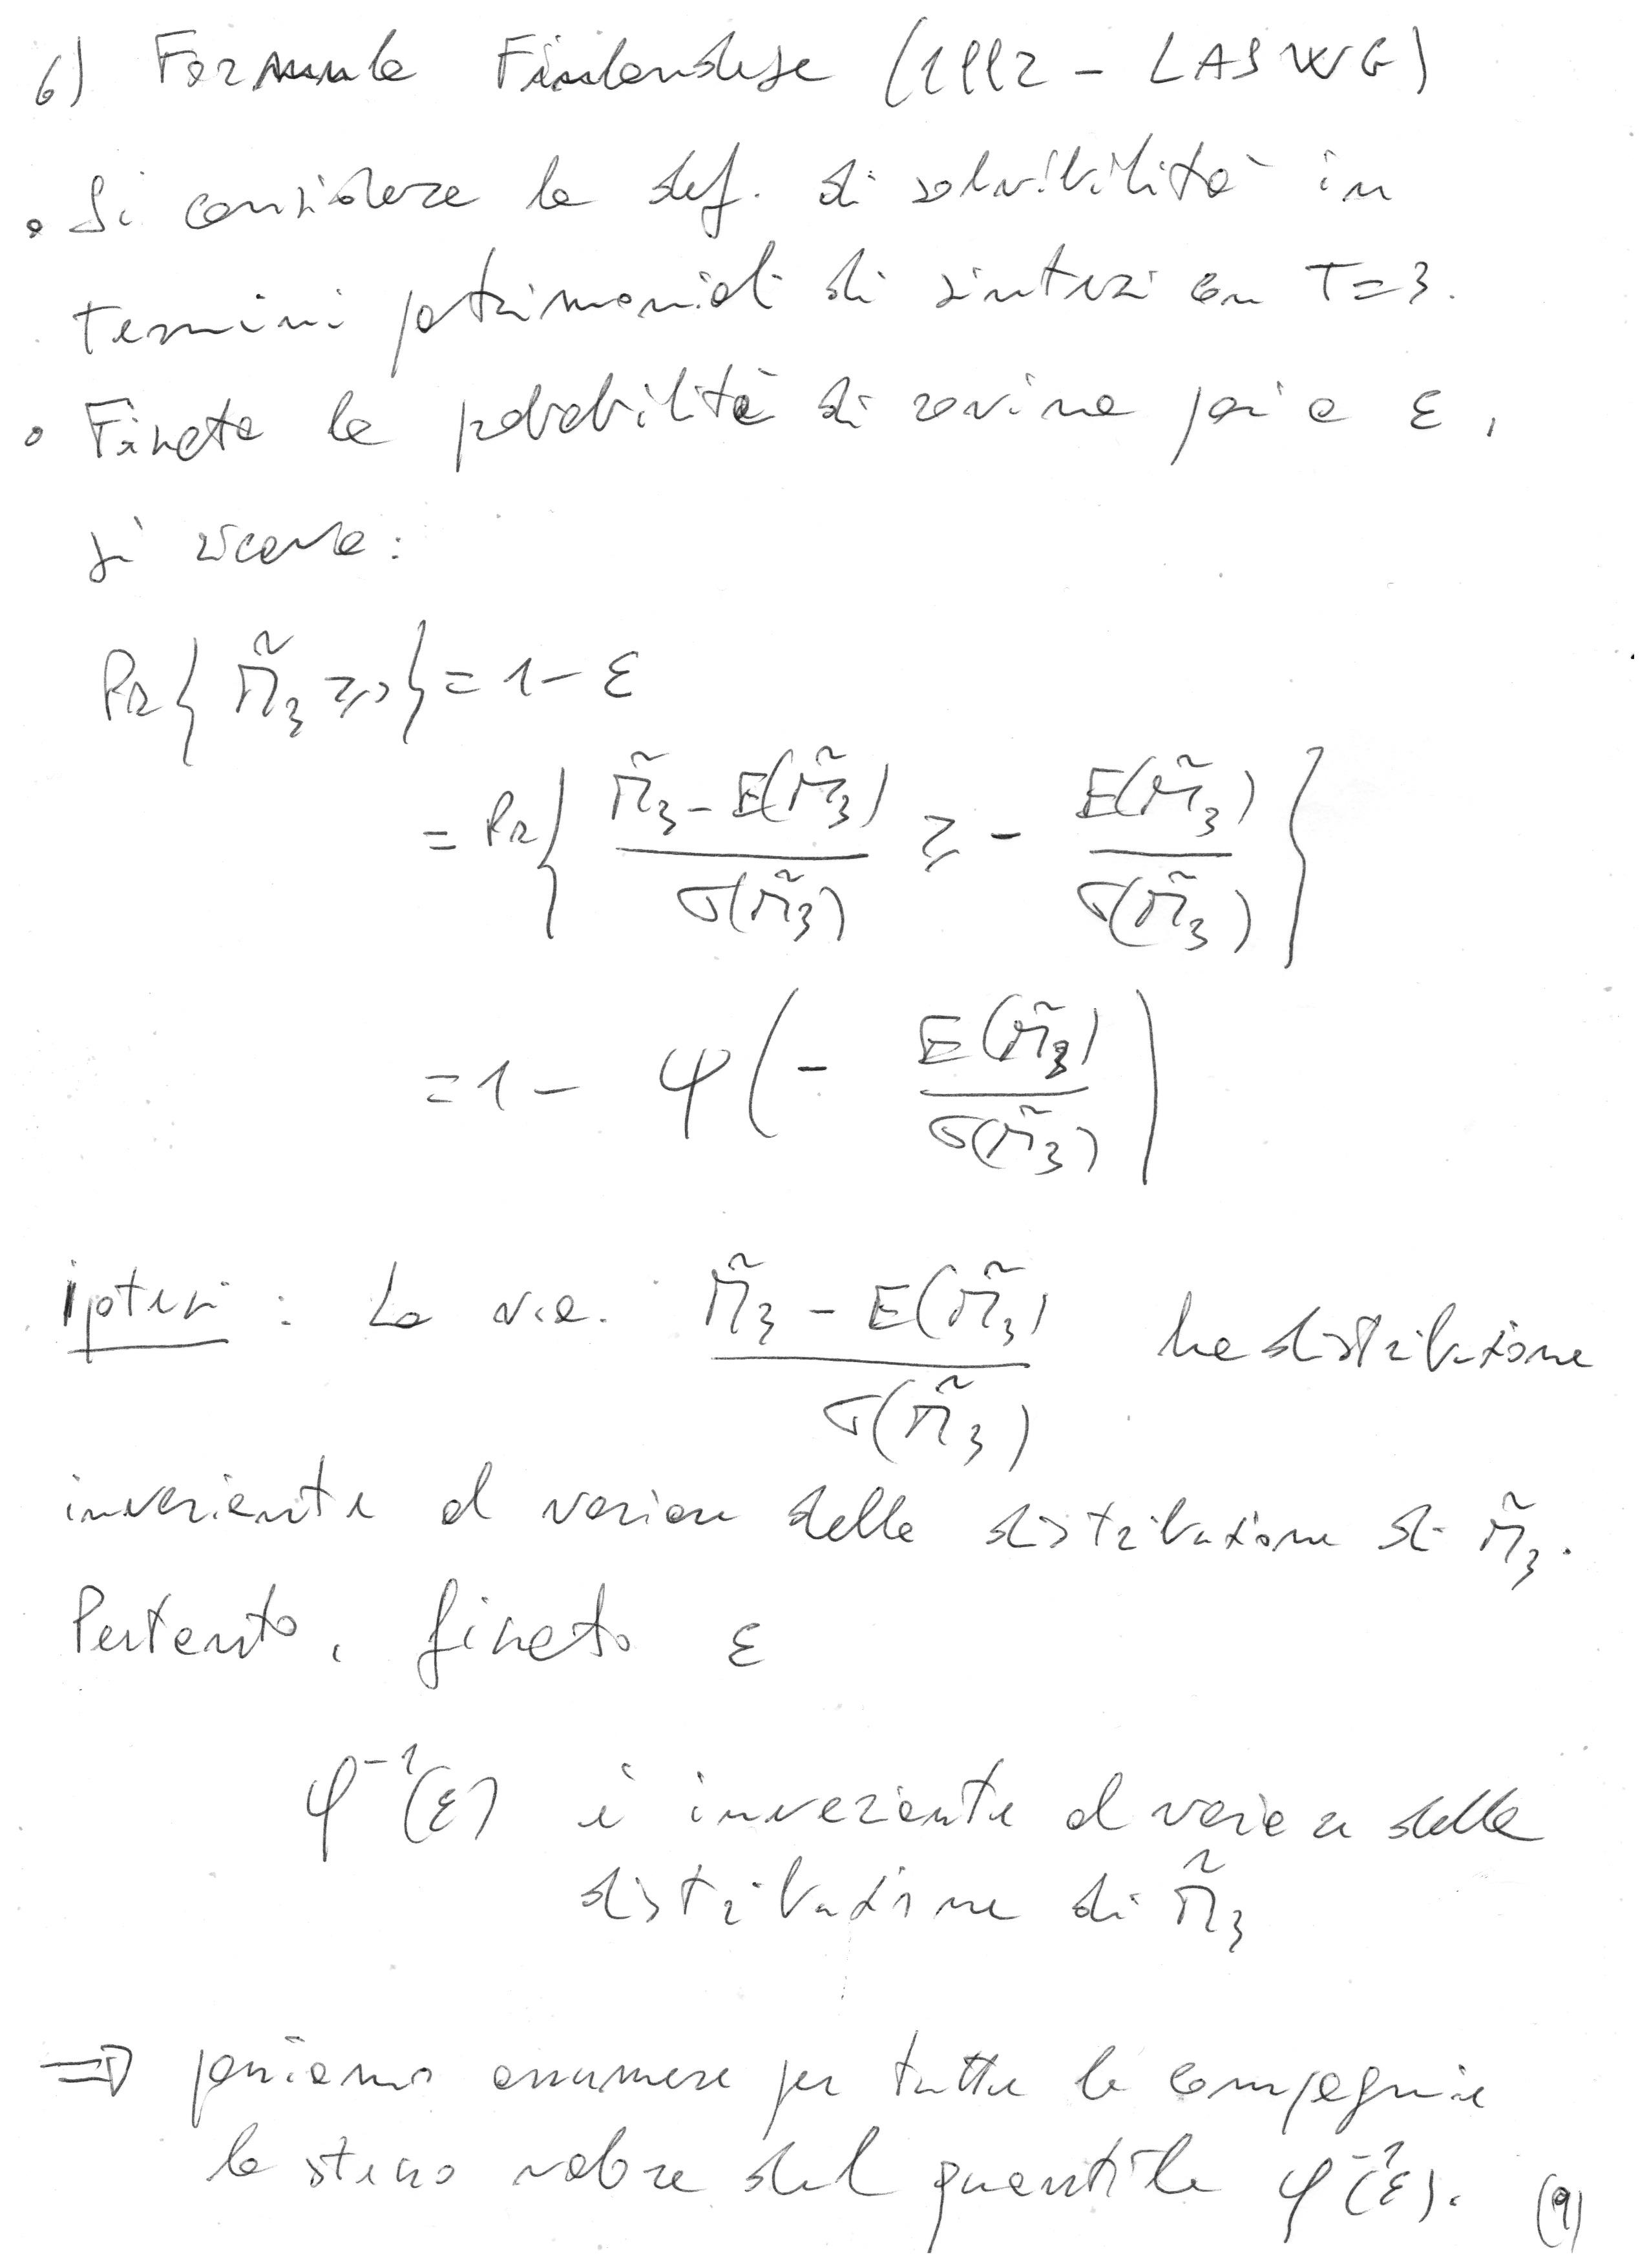 6) Formula Finlandese (1992 - LASWG)
• Si considera la def. di solvibilità in
termini patrimoniali di sintesi con T=3.
• Fissata la probabilità di rovina pari a ε,
si ricava:
Pr{ M̃₃ ≥ 0 } = 1 - ε
= Pr{ (M̃₃ - E(M̃₃)) / σ(M̃₃) ≥ - E(M̃₃) / σ(M̃₃) }
= 1 - φ( - E(M̃₃) / σ(M̃₃) )
Ipotesi: La v.a. (M̃₃ - E(M̃₃)) / σ(M̃₃) ha distribuzione
invariante al variare della distribuzione di M̃₃.
Pertanto, fissato ε
φ⁻¹(ε) è invariante al variare della
distribuzione di M̃₃
⇒ possiamo assumere per tutte le compagnie
lo stesso valore del quantile φ⁻¹(ε). (9)